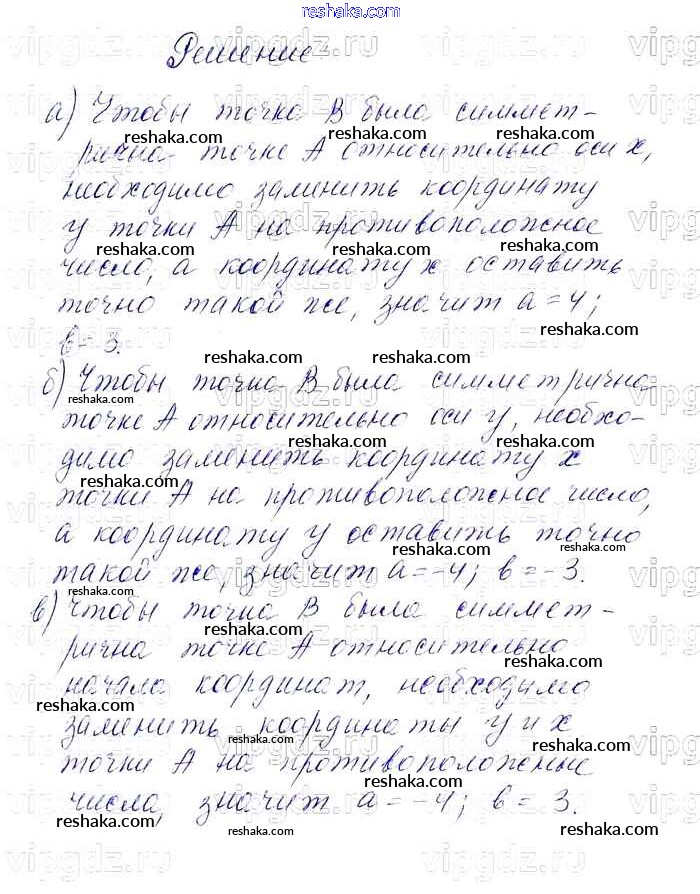 reshaka.com
Решение
а) Чтобы точка В была симмет-
рична точке А относительно оси х,
необходимо заменить координату
у точки А на противоположное
число, а координату х оставить
точно такой же, значит а = 4;
в = 3.
б) Чтобы точка В была симметрична
точке А относительно оси у, необхо-
димо заменить координату х
точки А на противоположное число,
а координату у оставить точно
такой же, значит а = -4; в = -3.
в) Чтобы точка В была симмет-
рична точке А относительно
начала координат, необходимо
заменить координаты у и х
точки А на противоположные
числа, значит а = -4; в = 3.